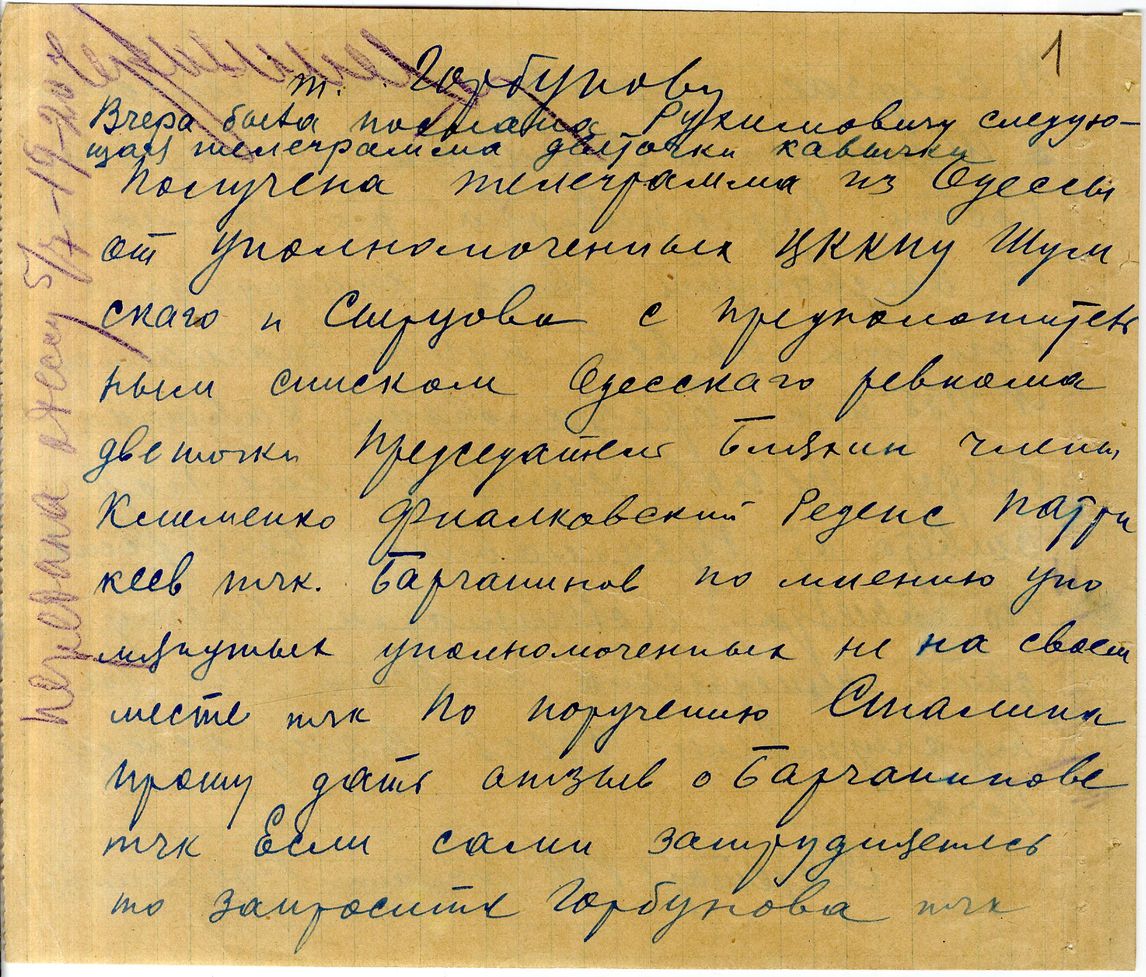 1
т. Горбунову
Вчера была послана Рухимовичу следую-
щая телеграмма двоеточки кавычки
Получена телеграмма из Одессы
от уполномоченных ЦККПУ Шум
скаго и Сырцова с предположител
ным списком Одесскаго ревкома
дветочки Председатель Блякин члены
Клименко Фиалковский Реденс Патри
кеев тчк. Барчанинов по мнению упо
мянутых уполномоченных не на своем
месте тчк По поручению Сталина
прошу дать отзыв о Барчанинове
тчк Если сами затрудняетесь
то запросите Горбунова тчк
5/7-19-20